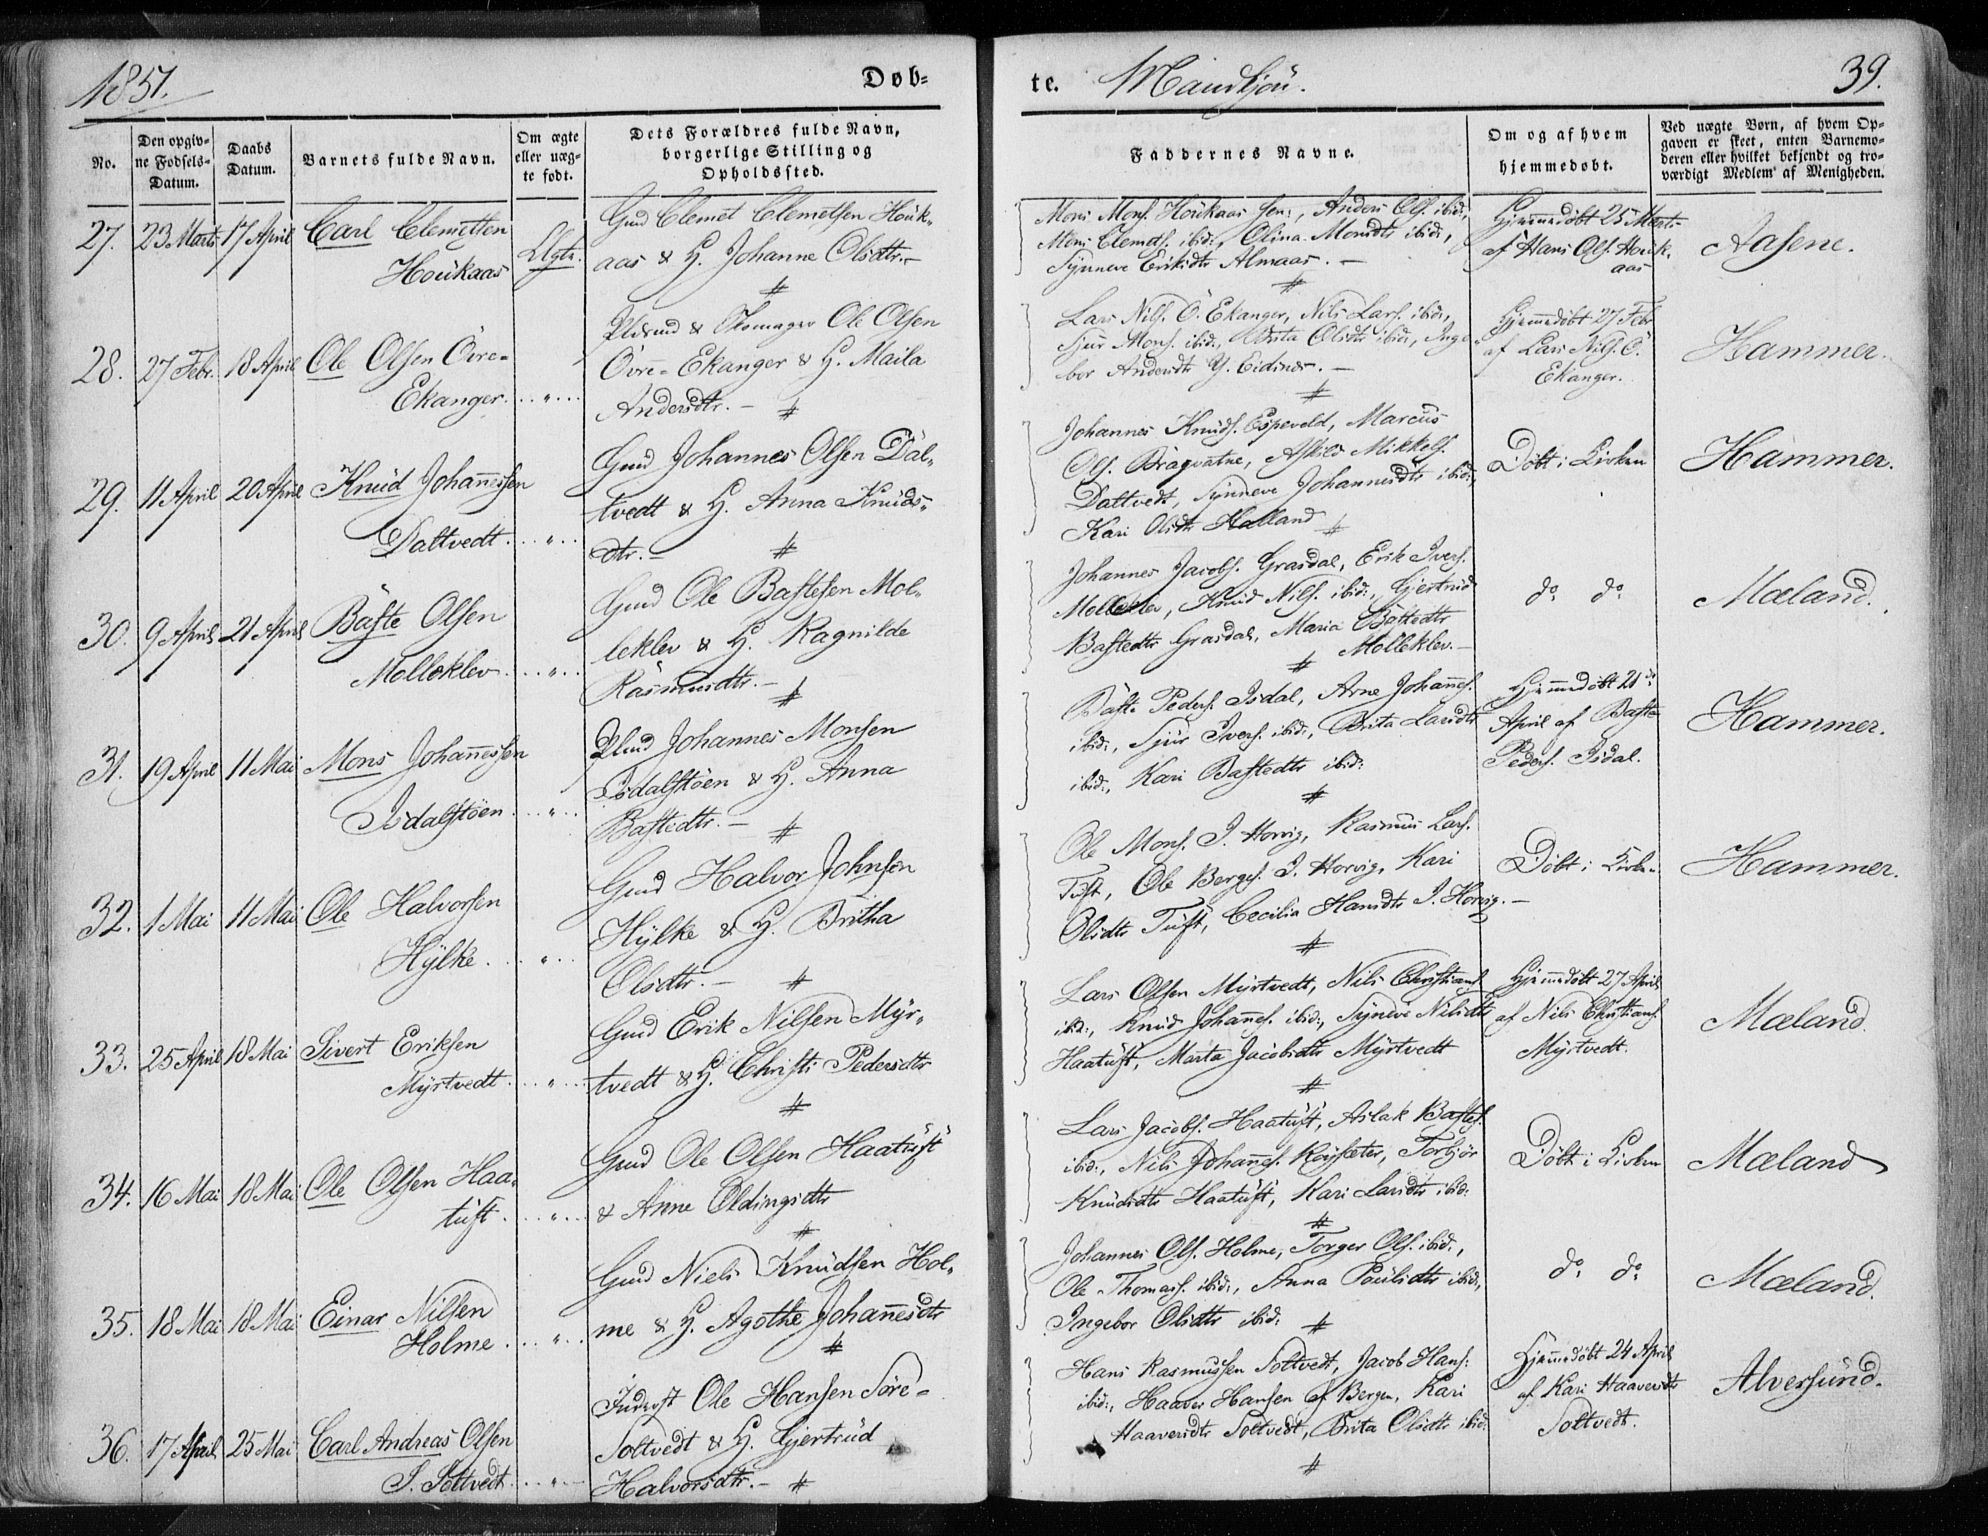 1851.
Døb=
te.
Mandkjön.
39.
No.
Den opgiv=
ne Fødsels=
Datum.
Daabs
Datum.
Barnets fulde Navn.
Om ægte
eller uæg=
te født.
Dets Forældres fulde Navn,
borgerlige Stilling og
Opholdssted.
Faddernes Navne.
Om og af hvem
hjemmedøbt.
Ved uægte Børn, af hvem Op=
gaven er skeet, enten Barnemo=
deren eller hvilket bekjendt og tro=
værdigt Medlem af Menigheden.
27. 23 Marts 17 April Carl Clemetsen
Houkaas
Gmd Clemet Clemetsen Houk-
aas & H. Johanne Olsdtr.-
Mons Mons. Houkaas sen:, Anders Ols. ibid:,
Mons Clemets. ibid:, Olina Monsdtr ibid:,
Synneve Eriksdtr Almaas. -
Hjemmedøbt 25 Marts
af Hans Ols. Houk-
aas
Aasene.
28. 27 Febr. 18 April Ole Olsen Övre-
Ekanger. .."..
Ole Olsen
Övre-Ekanger & H. Maila
Andersdtr. -
Lars Nils. Ö. Ekanger, Nils Lars. ibid:,
Sjur Mons. ibid:, Brita Olsdtr ibid:, Inge-
bor Andersdtr Y. Eidsnes. -
Hjemmedøbt 27 Febr
af Lars Nils. Ö.
Ekanger.
Hammer.
29. 11 April 20 April Knud Johannessen
Daltvedt. .."..
Gmd Johannes Olsen Dal-
tvedt & H. Anna Knuds-
dtr. -
Johannes Knuds. Espeveld, Marcus
Ols. Dragvatne, Askild Mikkels.
Daltvedt, Synneve Johannesdtr ibid:,
Kari Olsdtr Halland
Döbt i Kirken
Hammer.
30. 9 April 21 April Baste Olsen
Molleklev. .."..
Gmd Ole Bastesen Mol-
leklev & H. Ragnilde
Rasmusdtr. -
Johannes Jacobs. Grasdal, Erik Ivers.
Molleklev, Knud Nils. ibid:, Gjertrud
Bastedtr Grasdal, Maria Bastedtr
Molleklev. -
do do
Mæland.
31. 19 April 11 Mai Mons Johannessen
Isdalstöen. .."..
Johannes Monsen
Isdalstöen & H. Anna
Bastedtr. -
Baste Peders. Isdal, Arne Johannes.
ibid:, Sjur Ivers. ibid:, Brita Larsdtr
ibid:, Kari Bastedtr ibid:
Hjemmedøbt 21de
April af Baste
Peders. Isdal.
Hammer.
32. 1 Mai 11 Mai Ole Halvorsen
Hylke. .."..
Gmd Halvor Johnsen
Hylke & H. Britha
Olsdtr. -
Ole Mons. I. Horvig, Rasmus Lars.
Tuft, Ole Berges. I. Horvig, Kari
Olsdtr Tuft, Cecilia Hansdtr I. Horvig. -
Döbt i Kirken
Hammer.
33. 25 April 18 Mai Sivert Eriksen
Myrtvedt. .."..
Gmd Erik Nilsen Myr-
tvedt & H. Christi Pedersdtr
Lars Olsen Myrtvedt, Nils Christians.
ibid:, Knud Johannes. ibid:, Synneve Nilsdtr
Haatuft, Marta Jacobsdtr Myrtvedt
Hjemmedøbt 27 April
af Nils Christians.
Myrtvedt.
Mæland.
34. 16 Mai 18 Mai Ole Olsen Haa-
tuft. .."..
Gmd Ole Olsen Haatuft
& Anne Oldingsdtr
Lars Jacobs. Haatuft, Aslak Bastes.
ibid:, Nils Johannes. , Torbjör
Knudsdtr Haatuft, Kari Larsdtr ibid:
Döbt i Kirken
Mæland
35. 18 Mai 18 Mai Einar Nilsen
Holme. .."..
Gmd Niels Knudsen Hol-
me & H. Agothe Johannesdtr
Johannes Ols. Holme, Torger Ols. ibid:,
Ole Thomas. ibid:, Anna Poulsdtr ibid:,
Ingebor Olsdtr ibid:
do do
Mæland.
36. 17 April 25 Mai Carl Andreas Olsen
S. Soltvedt. .."..
Inderst Ole Hansen Söre-
Soltvedt & H. Gjertrud
Halvorsdtr. -
Hans Rasmussen Soltvedt, Jacob Hans:
ibid:, Haaver Hansen af Bergen, Kari
Haaversdtr Soltvedt, Brita Olsdtr ibid:
Hjemmedøbt 24 April
af Kari Haaversdtr
Soltvedt.
Alversund.